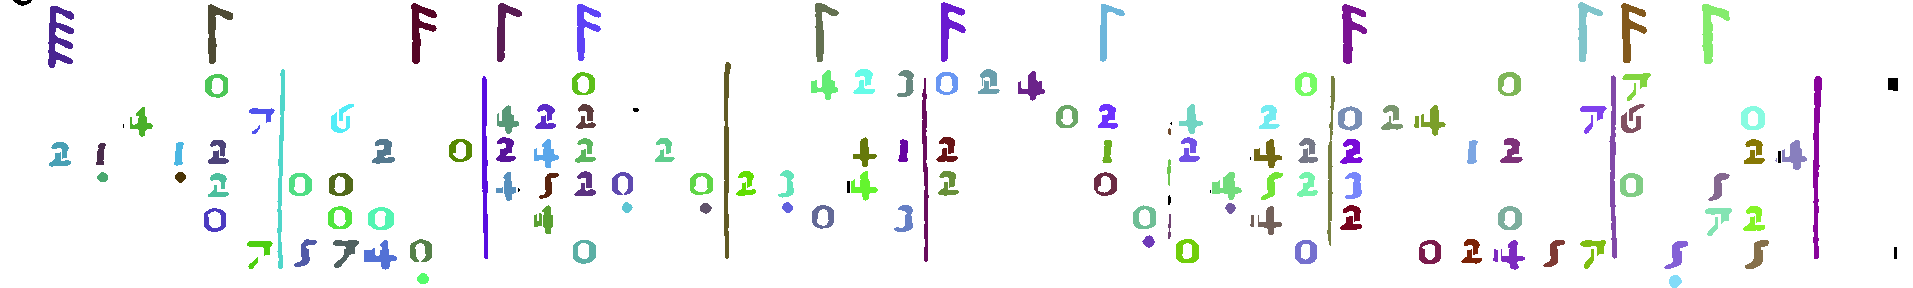 0 0 4 2 3 0 2 4 0 0 7
4 7 6 4 2 2 0 2 4 2 0 2 4 7 6 0
2 1 1 2 2 0 2 4 2 2 4 1 2 1 2 4 2 2 1 2 2 4
2 0 0 4 5 2 0 0 2 3 4 2 0 4 5 2 3 0 5
0 0 0 4 0 3 0 4 2 0 7 2
7 5 7 4 0 0 0 0 0 2 4 5 7 5 5